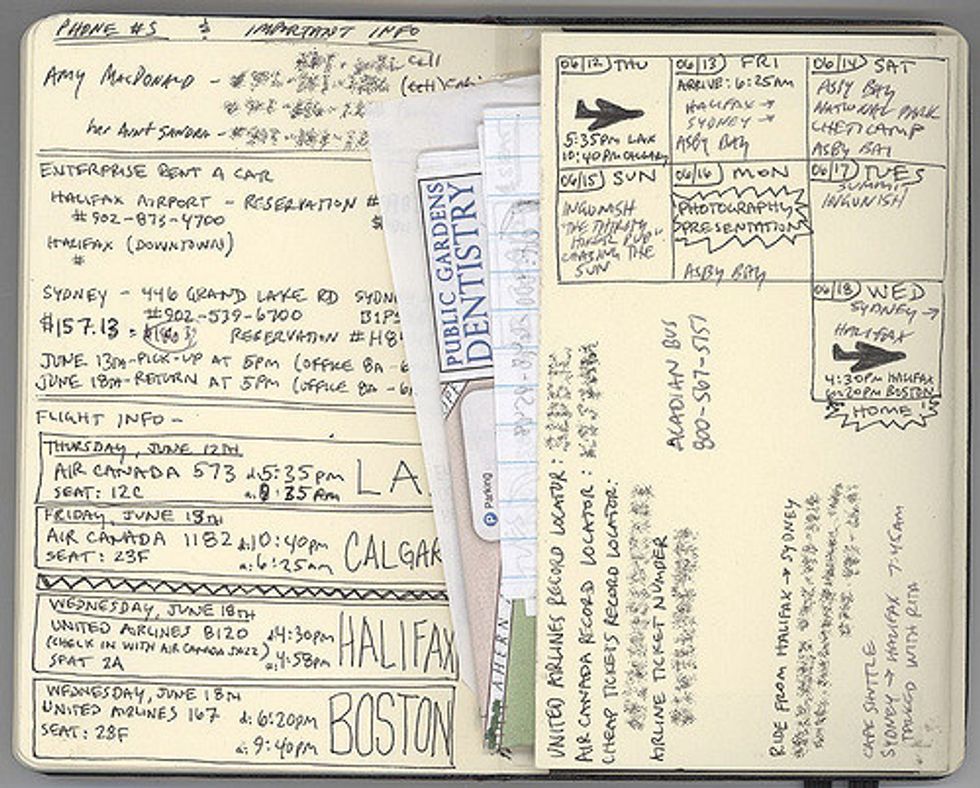 PHONE #S & IMPORTANT INFO
cell
AMY MACDONALD - (cell)
her AUNT SANDRA -
ENTERPRISE RENT A CAR
HALIFAX AIRPORT - RESERVATION #
#902-873-4700
HALIFAX (DOWNTOWN)
#
SYDNEY - 446 GRAND LAKE RD
#902-539-6700
$157.13 = RESERVATION #H8
JUNE 13TH - PICK-UP AT 5PM (OFFICE 8A - 6
JUNE 18TH - RETURN AT 5PM (OFFICE 8A - 6
FLIGHT INFO -
THURSDAY, JUNE 12TH
AIR CANADA 573 d: 5:35pm
SEAT: 12C
LA
FRIDAY, JUNE 13TH
AIR CANADA 1182 d: 10:40pm
SEAT: 23F a: 6:25am
CALGAR
WEDNESDAY, JUNE 18TH
UNITED AIRLINES 8120 d: 4:30pm
(CHECK IN WITH AIR CANADA JAZZ) a: 4:58pm
SEAT 2A
HALIFAX
WEDNESDAY, JUNE 18TH
UNITED AIRLINES 167 d: 6:20pm
SEAT: 28F a: 9:40pm
BOSTON
PUBLIC GARDENS
DENTISTRY
P Parking
06/12 THU
5:35PM LAX
10:40PM CALGARY
06/13 FRI
ARRIVE: 6:25AM
HALIFAX →
SYDNEY →
ASBY BAY
06/14 SAT
ASBY BAY
NATIONAL PARK
CHETICAMP
ASBY BAY
06/15 SUN
INGONISH
THE THIRSTY
HIKER PUB -
CHASING THE
SUN
06/16 MON
PHOTOGRAPHY
PRESENTATION
ASBY BAY
06/17 TUES
SUMMIT
INGONISH
06/18 WED
SYDNEY →
HALIFAX
4:30PM HALIFAX
BOSTON
HOME
UNITED AIRLINES RECORD LOCATOR:
AIR CANADA RECORD LOCATOR:
CHEAP TICKETS RECORD LOCATOR:
AIRLINE TICKET NUMBER
ACADIAN BUS
800-567-5151
RIDE FROM HALIFAX → SYDNEY
CAPE SHUTTLE
SYDNEY → HALIFAX 7:45AM
TALKED WITH RITA